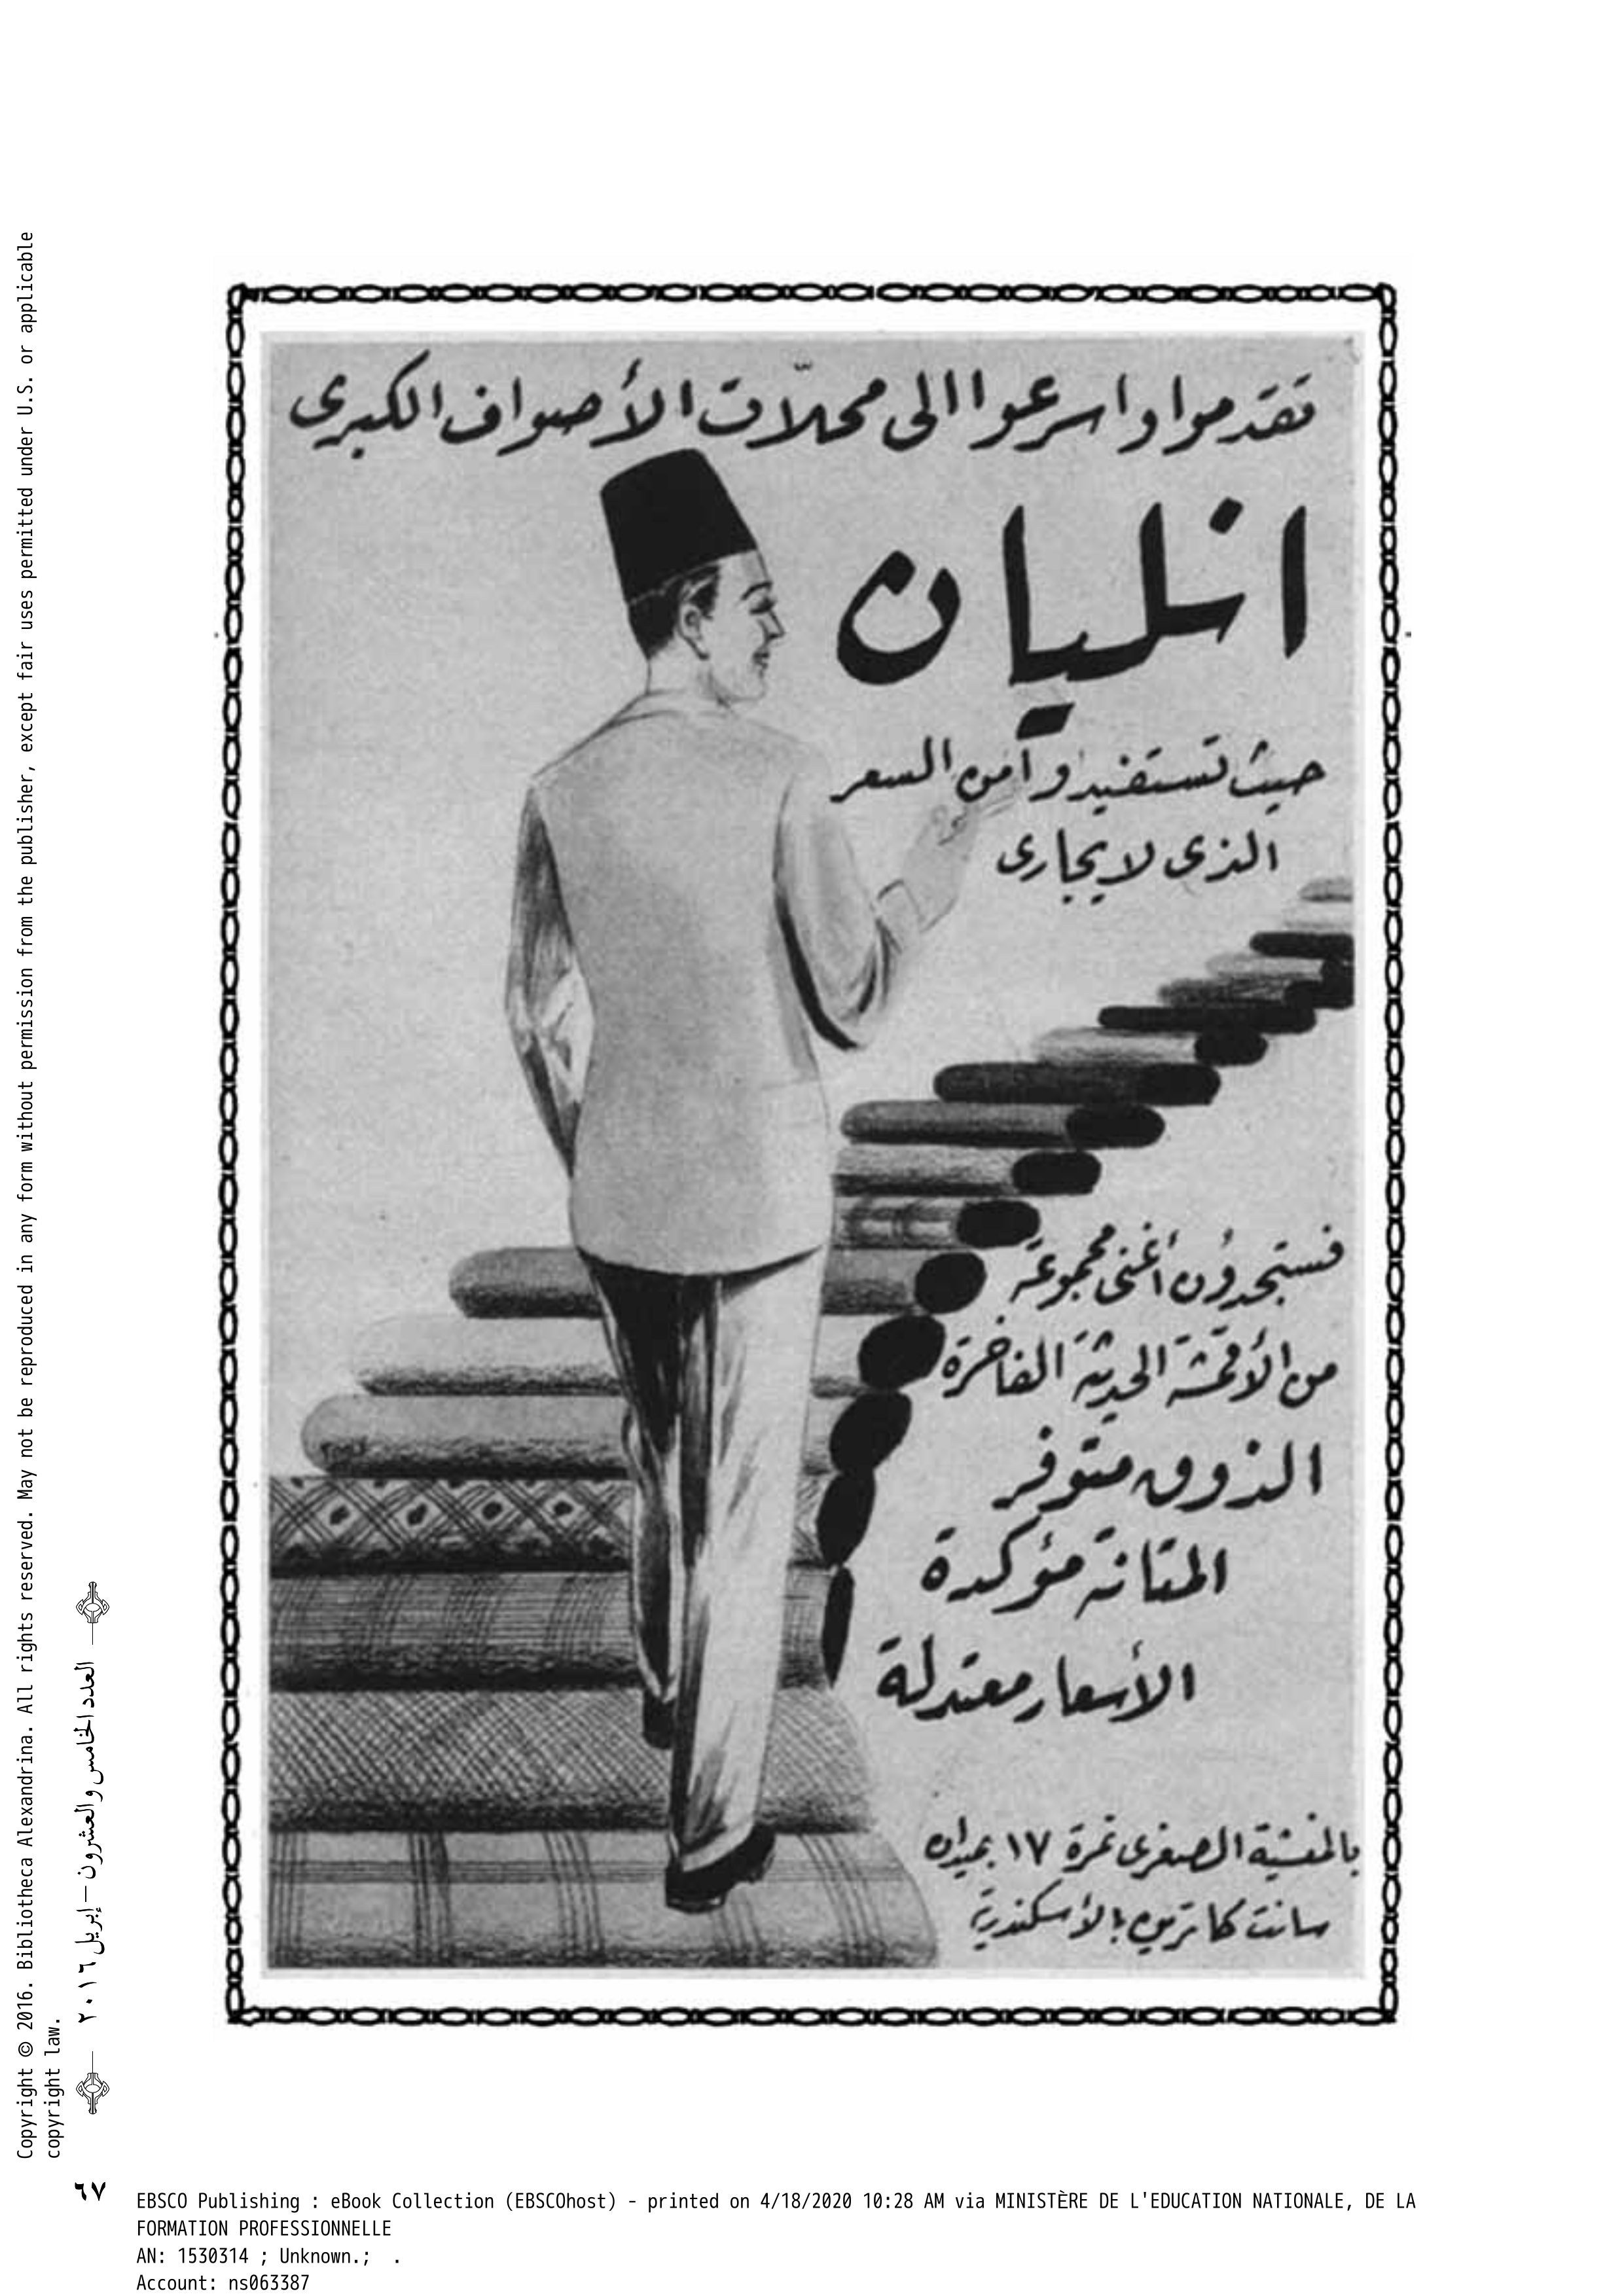 تقدموا واسرعوا الى محلّات الأصواف الكبرى
انليان
حيث تستفيدوا من السعر
الذى لا يجارى
فستجدون أغنى مجموعة
من الأقمشة الحديثة الفاخرة
الذوق متوفر
المتانة مؤكدة
الأسعار معتدلة
بالمنشية الصغرى نمرة ١٧ بميدان
سانت كاترين بالأسكندرية
Copyright © 2016. Bibliotheca Alexandrina. All rights reserved. May not be reproduced in any form without permission from the publisher, except fair uses permitted under U.S. or applicable
copyright law.
العدد الخامس والعشرون – إبريل ٢٠١٦
٦٧
EBSCO Publishing : eBook Collection (EBSCOhost) - printed on 4/18/2020 10:28 AM via MINISTÈRE DE L'EDUCATION NATIONALE, DE LA
FORMATION PROFESSIONNELLE
AN: 1530314 ; Unknown.; .
Account: ns063387